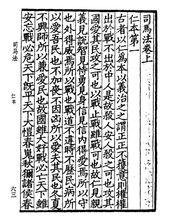 司馬法卷上
仁本第一
古者以仁為本以義治之之謂正正不獲意則權權
出於戰不出於中人是故殺人安人殺之可也攻其
國愛其民攻之可也以戰止戰雖戰可也故仁見親
義見說智見恃勇見方信見信內得愛焉所以守
也外得威焉所以戰也戰道不違時不歷民病所
以愛吾民也不加喪不因凶所以愛夫其民也冬夏
不興師所以兼愛民也故國雖大好戰必亡天下雖
安忘戰必危天下既平天下大愷春蒐秋獮諸侯春
司馬法
仁本
六三